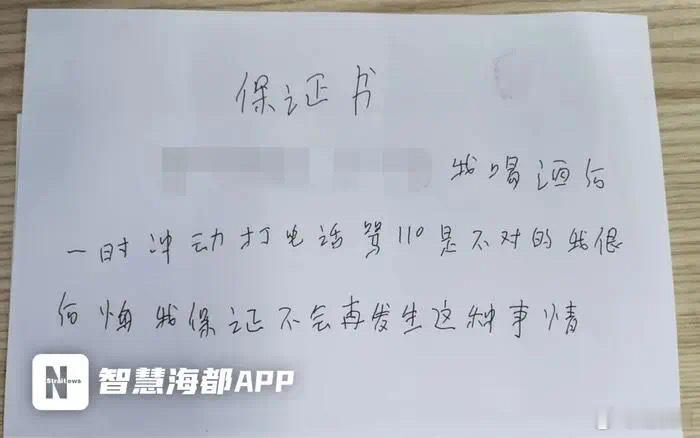 保证书
我喝酒后
一时冲动打电话骂110是不对的我很
后悔我保证不会再发生这种事情
N
Straitnews
智慧海都APP